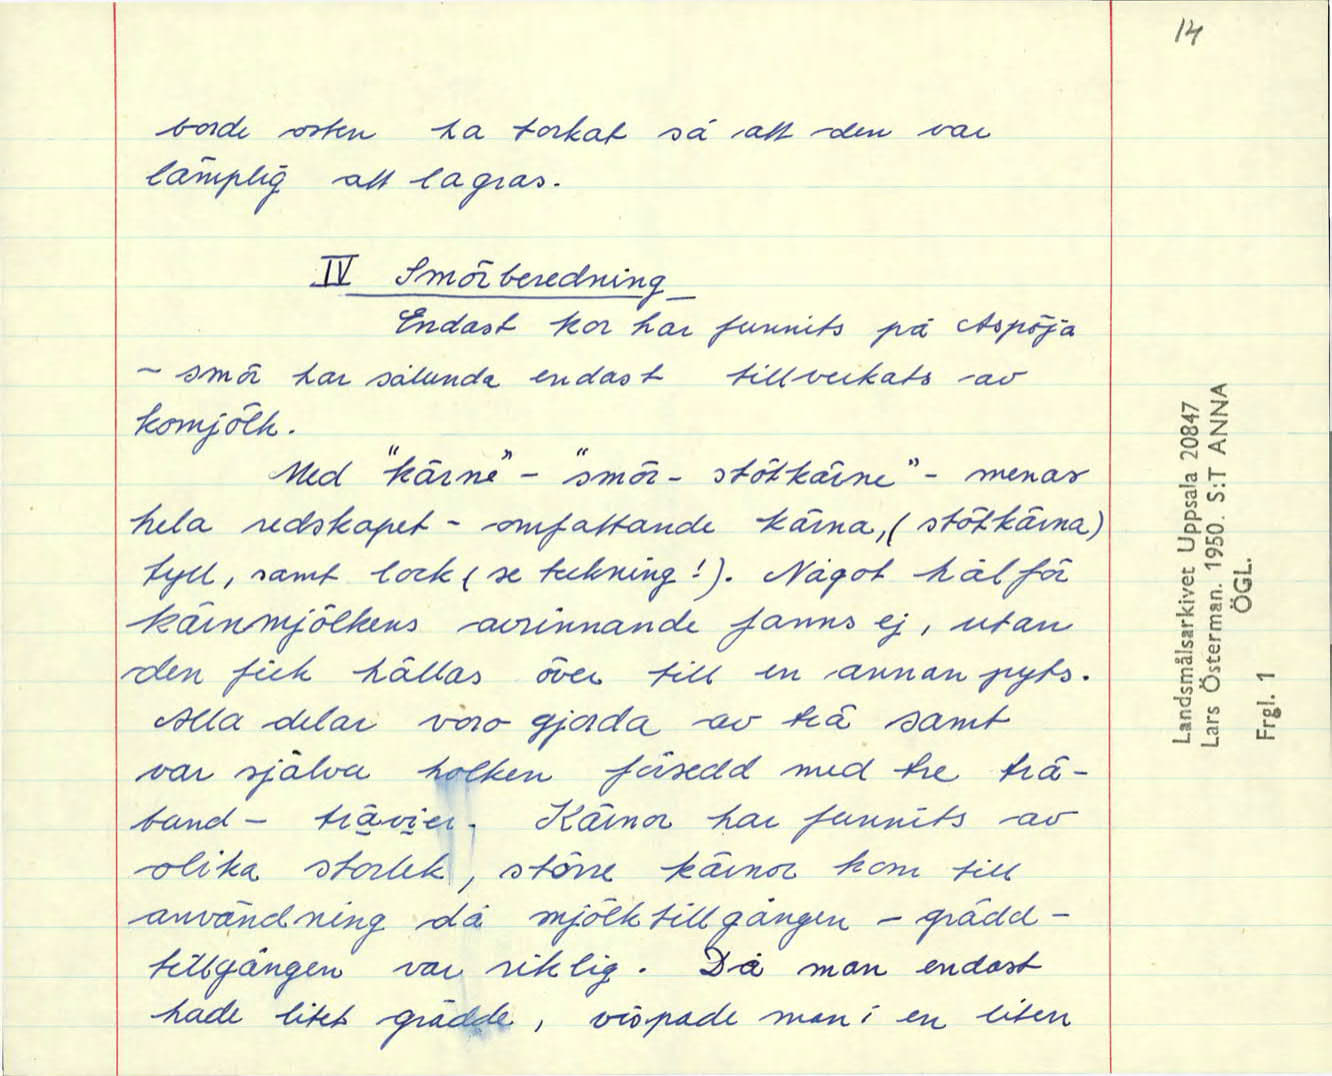 14
borde osten ha torkat så att den var
lämplig att lagras.
IV Smörberedning
Endast kor har funnits på Aspöja
- smör har sålunda endast tillverkats av
komjölk.
Med "kärne" - "smör- stötkärne" - menas
hela redskapet - omfattande kärna, (stötkärna)
tyll, samt lock (se teckning!). Något hål för
kärnmjölkens avrinnande fanns ej, utan
den fick hällas över till en annan pyts.
Alla delar voro gjorda av trä samt
var själva holken försedd med tre trä-
band - trävier. Kärnor har funnits av
olika storlek, större kärnor kom till
användning då mjölktillgången - grädd-
tillgången var riklig. Då man endast
hade litet grädde, vispade man i en liten
Landsmålsarkivet Uppsala 20847
Lars Österman. 1950. S:T ANNA
ÖGL.
Frgl. 1